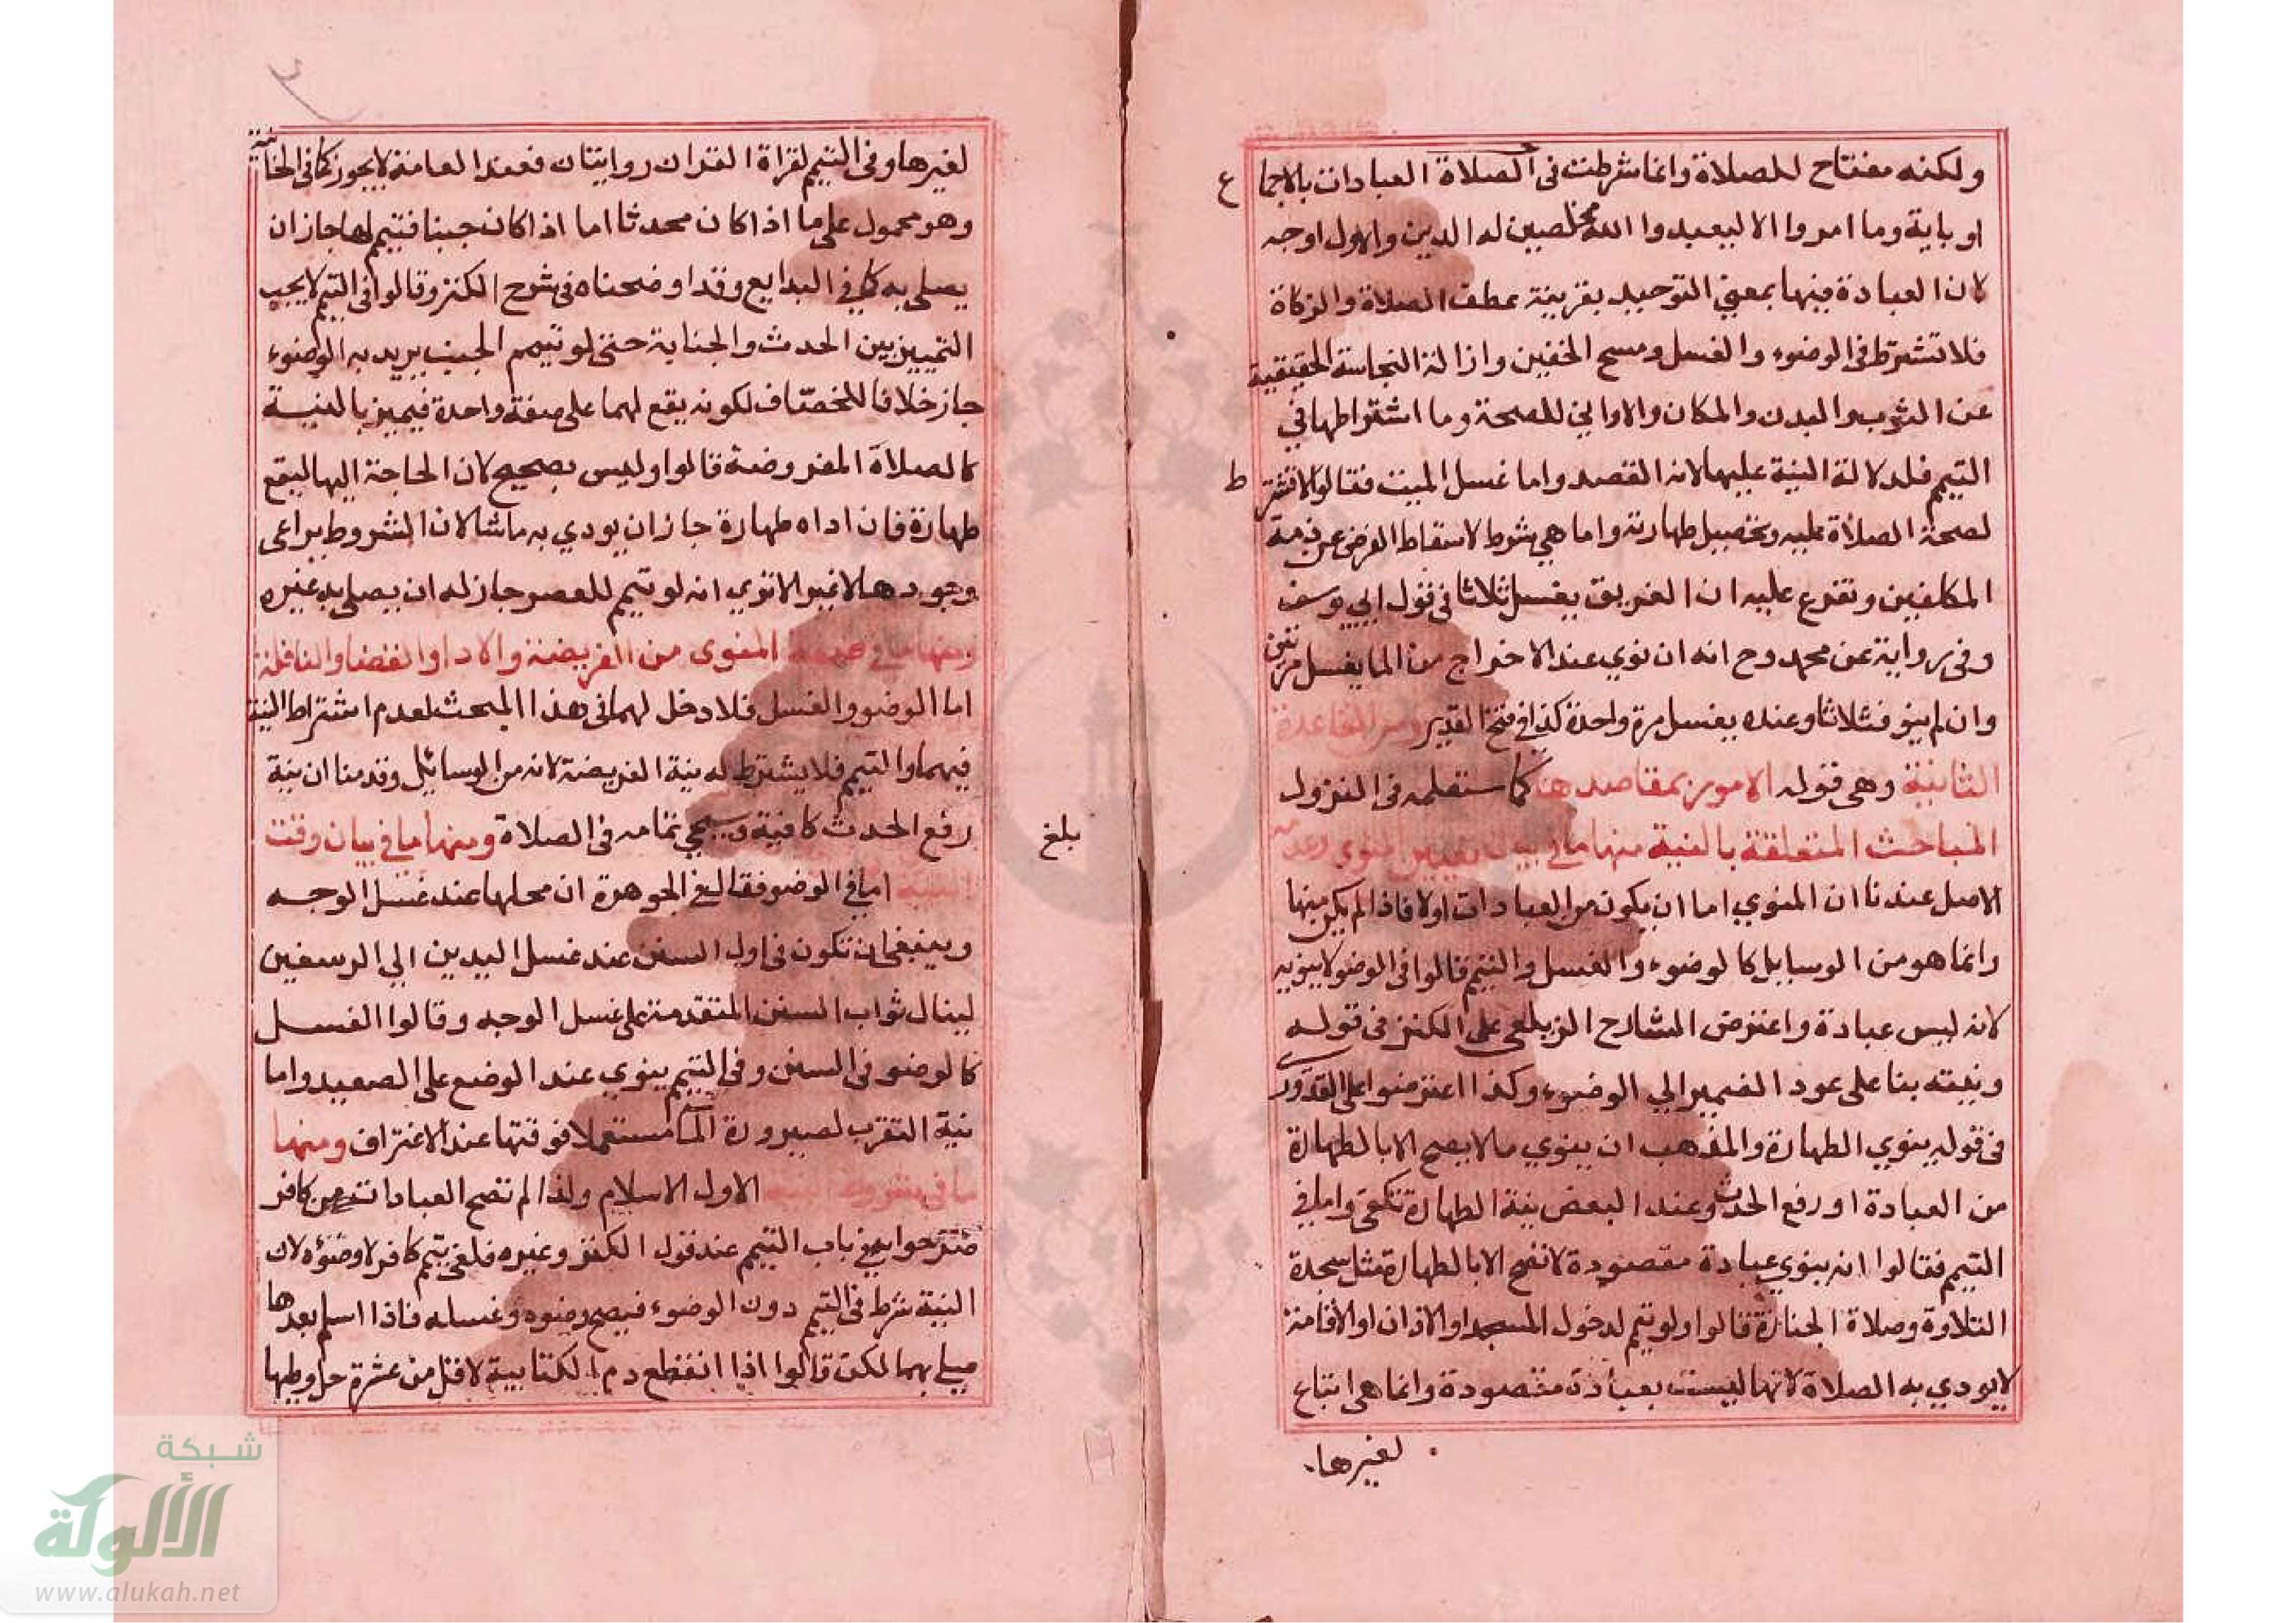 ولكنه مفتاح للصلاة وانما شرطت فى الصلاة العبادات بالاجماع
او باية وما امروا الا ليعبدوا الله مخلصين له الدين والاول اوجه
لان العبادة فيها بمعنى التوحيد بقرينة عطف الصلاة والزكاة
فلا تشترط فى الوضوء والغسل ومسح الخفين وازالة النجاسة الحقيقية
عن الثوب والبدن والمكان والاواني للصحة وما اشتراطها في
التيمم فلدلالة النية عليها لانه القصد واما غسل الميت فقالوا لا تشترط
لصحة الصلاة عليه وتحصيل طهارته واما هي شرط لاسقاط الفرض عن ذمة
المكلفين وتفرع عليه ان الغريق يغسل ثلاثا في قول ابي يوسف
وفى رواية عن محمد رح انه ان نوي عند الاخراج من الما يغسل مرتين
وان لم ينو فثلاثا وعنده يغسل مرة واحدة كذا في فتح القدير ومن القاعدة
الثانية وهى قوله الامور بمقاصدها كما ستعلمه فى النزول
المباحث المتعلقة بالنية منها ما في بيان تعيين المنوي وعدمه
الاصل عندنا ان المنوي اما ان يكون من العبادات او لا فاذا لم يكن منها
وانما هو من الوسايل كالوضوء والغسل والتيمم قالوا فى الوضو لا ينويه
لانه ليس عبادة واعترض الشارح الزيلعى على الكنز فى قوله
ونيته بنا على عود الضمير الي الوضوء وكذا اعترضوا على القدورى
فى قوله ينوي الطهارة والمذهب ان ينوي ما لا يصح الا بالطهارة
من العبادة او رفع الحدث وعند البعض نية الطهارة تكفى واما في
التيمم فقالوا انه ينوي عبادة مقصودة لا تصح الا بالطهارة مثل سجدة
التلاوة وصلاة الجنازة قالوا ولو تيمم لدخول المسجد او الاذان او الاقامة
لا يودي به الصلاة لانها ليست بعبادة مقصودة وانما هى اتباع
لغيرها
لغيرها وفى التيمم لقراة القران روايتان فعند العامة لا يجوز كما فى الخانية
وهو محمول على ما اذا كان محدثا اما اذا كان جنبا فتيمم لها جاز ان
يصلي به كما في البدايع وقد اوضحناه فى شرح الكنز وقالوا فى التيمم لا يجب
التمييز بين الحدث والجناية حتى لو تيمم الجنب يريد به الوضوء
جاز خلافا للخصاف لكونه يقع لهما على صفة واحدة فيميز بالنية
كالصلاة المفروضة قالوا وليس بصحيح لان الحاجة اليها ليقع
طهارة فان اداه طهارة جاز ان يودي به ما شا لان الشروط يراعى
وجودها لا غير الا تري انه لو تيمم للعصر جاز له ان يصلي به غيره
ومنها ما في صفة المنوى من الفريضة والادا والقضا والنافلة
اما الوضو والغسل فلا دخل لهما فى هذا المبحث لعدم اشتراط النية
فيهما والتيمم فلا يشترط له نية الفريضة لانه من الوسائل وقدمنا ان نية
رفع الحدث كافية وسيجي تمامه فى الصلاة ومنها ما في بيان وقت
بلغ
النية اما في الوضو فقال في الجوهرة ان محلها عند غسل الوجه
وينبغى ان تكون فى اول السنن عند غسل اليدين الي الرسغين
لينال ثواب السنن المتقدمة على غسل الوجه وقالوا الغسل
كالوضو فى السنن وفى التيمم ينوي عند الوضع على الصعيد واما
نية التقرب لصيرورة الما مستعملا فوقتها عند الاغتراف ومنها
ما في شروط النية الاول الاسلام ولذا لم تصح العبادات من كافر
صرحوا به في باب التيمم عند قول الكنز وغيره فلغى تيمم كافر لا وضؤه لان
النية شرط فى التيمم دون الوضوء فيصح وضوه وغسله فاذا اسلم بعدها
صلي بهما لكن قالوا اذا انقطع دم الكتابية لاقل من عشرة حل وطيها
شبكة
الألوكة
www.alukah.net